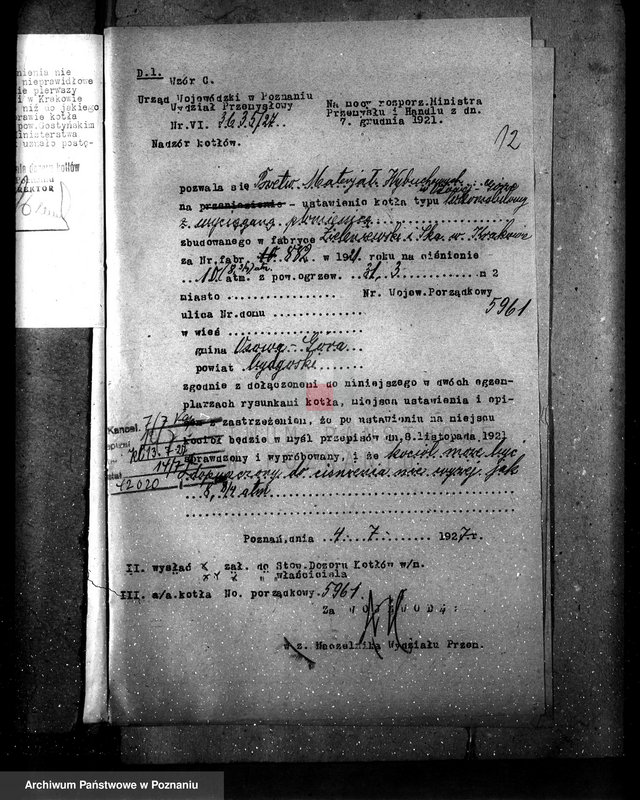 nienia nie
nieprawidłowe
ie pierwszy
i w Krakowie
niż do jakiego
prawie kotła
pow. Gostyńskim
inisterstwa
uznało postę-
D.1. Wzór C.
Urząd Wojewódzki w Poznaniu
Wydział Przemysłowy
Nr. VI.
Nadzór kotłów.
Na mocy rozporz. Ministra
Przemysłu i Handlu z dn.
7. grudnia 1921.
12
pozwala się Wytw. Materjał. Wybuchowych
na przeniesienie - ustawienie kotła typu lokomobilowego
z wyciąganą płomienicą
zbudowanego w fabryce Zieleniewski i Ska. w Krakowie
za Nr. fabr. 882 w 1921 roku na ciśnienie
10 atm. z pow. ogrzew. 31,3 m 2
miasto Nr. Wojew. Porządkowy
5961
ulica Nr. domu
w wieś
gmina Osowa-Góra
powiat bydgoski
zgodnie z dołączonemi do niniejszego w dwóch egzem-
plarzach rysunkami kotła, miejsca ustawienia i opi-
zastrzeżeniem, że po ustawieniu na miejscu
kocioł będzie w myśl przepisów dn. 8. listopada 1921
sprawdzony i wypróbowany, i że kocioł może być
dopuszczony do ciśnienia nie wyżej jak
8, 3/4 atm.
Kancel. 7/7
12020
Poznań, dnia 4. 7. 1927 r.
II. wysłać zał. do Stow. Dozoru Kotłów w/m.
" właściciela
III. a/a. kotła No. porządkowy. 5961.
Za WOJEWODĘ:
w z. Naczelnika Wydziału Przem.
Archiwum Państwowe w Poznaniu